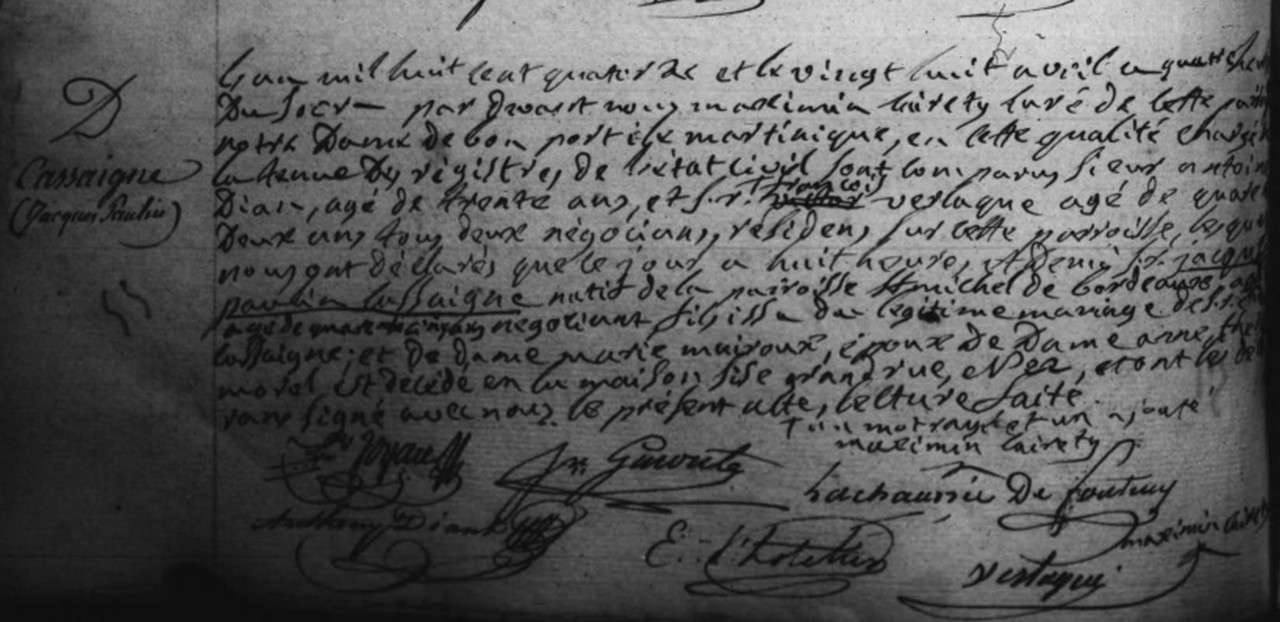 D
Cassaigne
(Jacques Paulin)
L'an mil huit cent quatorze et le vingt huit avril a quatre heur
Du soir par devant nous maximin Cairety Curé de Cette paroi
notre Dame de bon port isle martinique, en Cette qualité chargé
la tenue Des régistres de l'état Civil sont Comparus sieur antoin
Dian, agé de trente ans, et s.r françois verlaque agé de quara
Deux ans tous deux négocians, residens sur Cette parroisse, lesque
nous ont déclarés que Ce jour a huit heures et demie s.r jacque
paulin Cassaigne natif de la parroisse st michel de bordeaux
agé de quarante cinq ans négociant fils issu du légitime mariage de s.r
Cassaigne, et De dame marie mairoux, époux De Dame anne
morel est décédé en la maison sise grand rue, et ont les dé
rans signé avec nous le présent acte, lecture faite.
un mot rayé et un ajouté
maximin Cairety
Lachaussée De fontenay
maximin Cairety
Verlaque